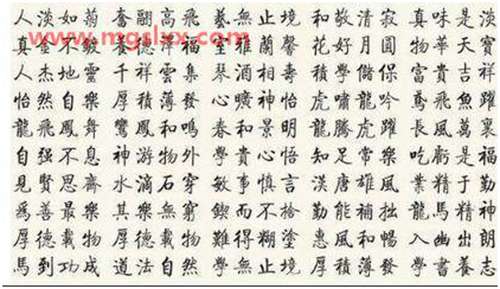 人淡如菊 奮翮高飛 藝無止境 和敬清寂 真味是淡
www.mgslxx.com
真金不鍍 福 室雅蘭馨 花好月圓 物華天寶
人杰地靈 千祥雲集 琴酒相壽 積學儲 富貴吉祥
怡然自樂 厚積薄發 心曠神怡 虎嘯龍吟 鳶飛魚躍
龍飛鳳舞 鸞鳳和鳴 春和景明 龍騰虎躍 長風萬裏
自强不息 神游物外 學貴心悟 知足常樂 吃虧是福
見賢思齊 水滴石穿 敏事慎言 漢唐雄風 業精于勤
爲善最樂 其樂無窮 鍥而不捨 勤能補拙 龍馬精神
厚德載物 厚德載物 難得糊塗 惠風和暢 入幽出朗
馬到功成 道法自然 學無止境 厚積薄發 學書養志